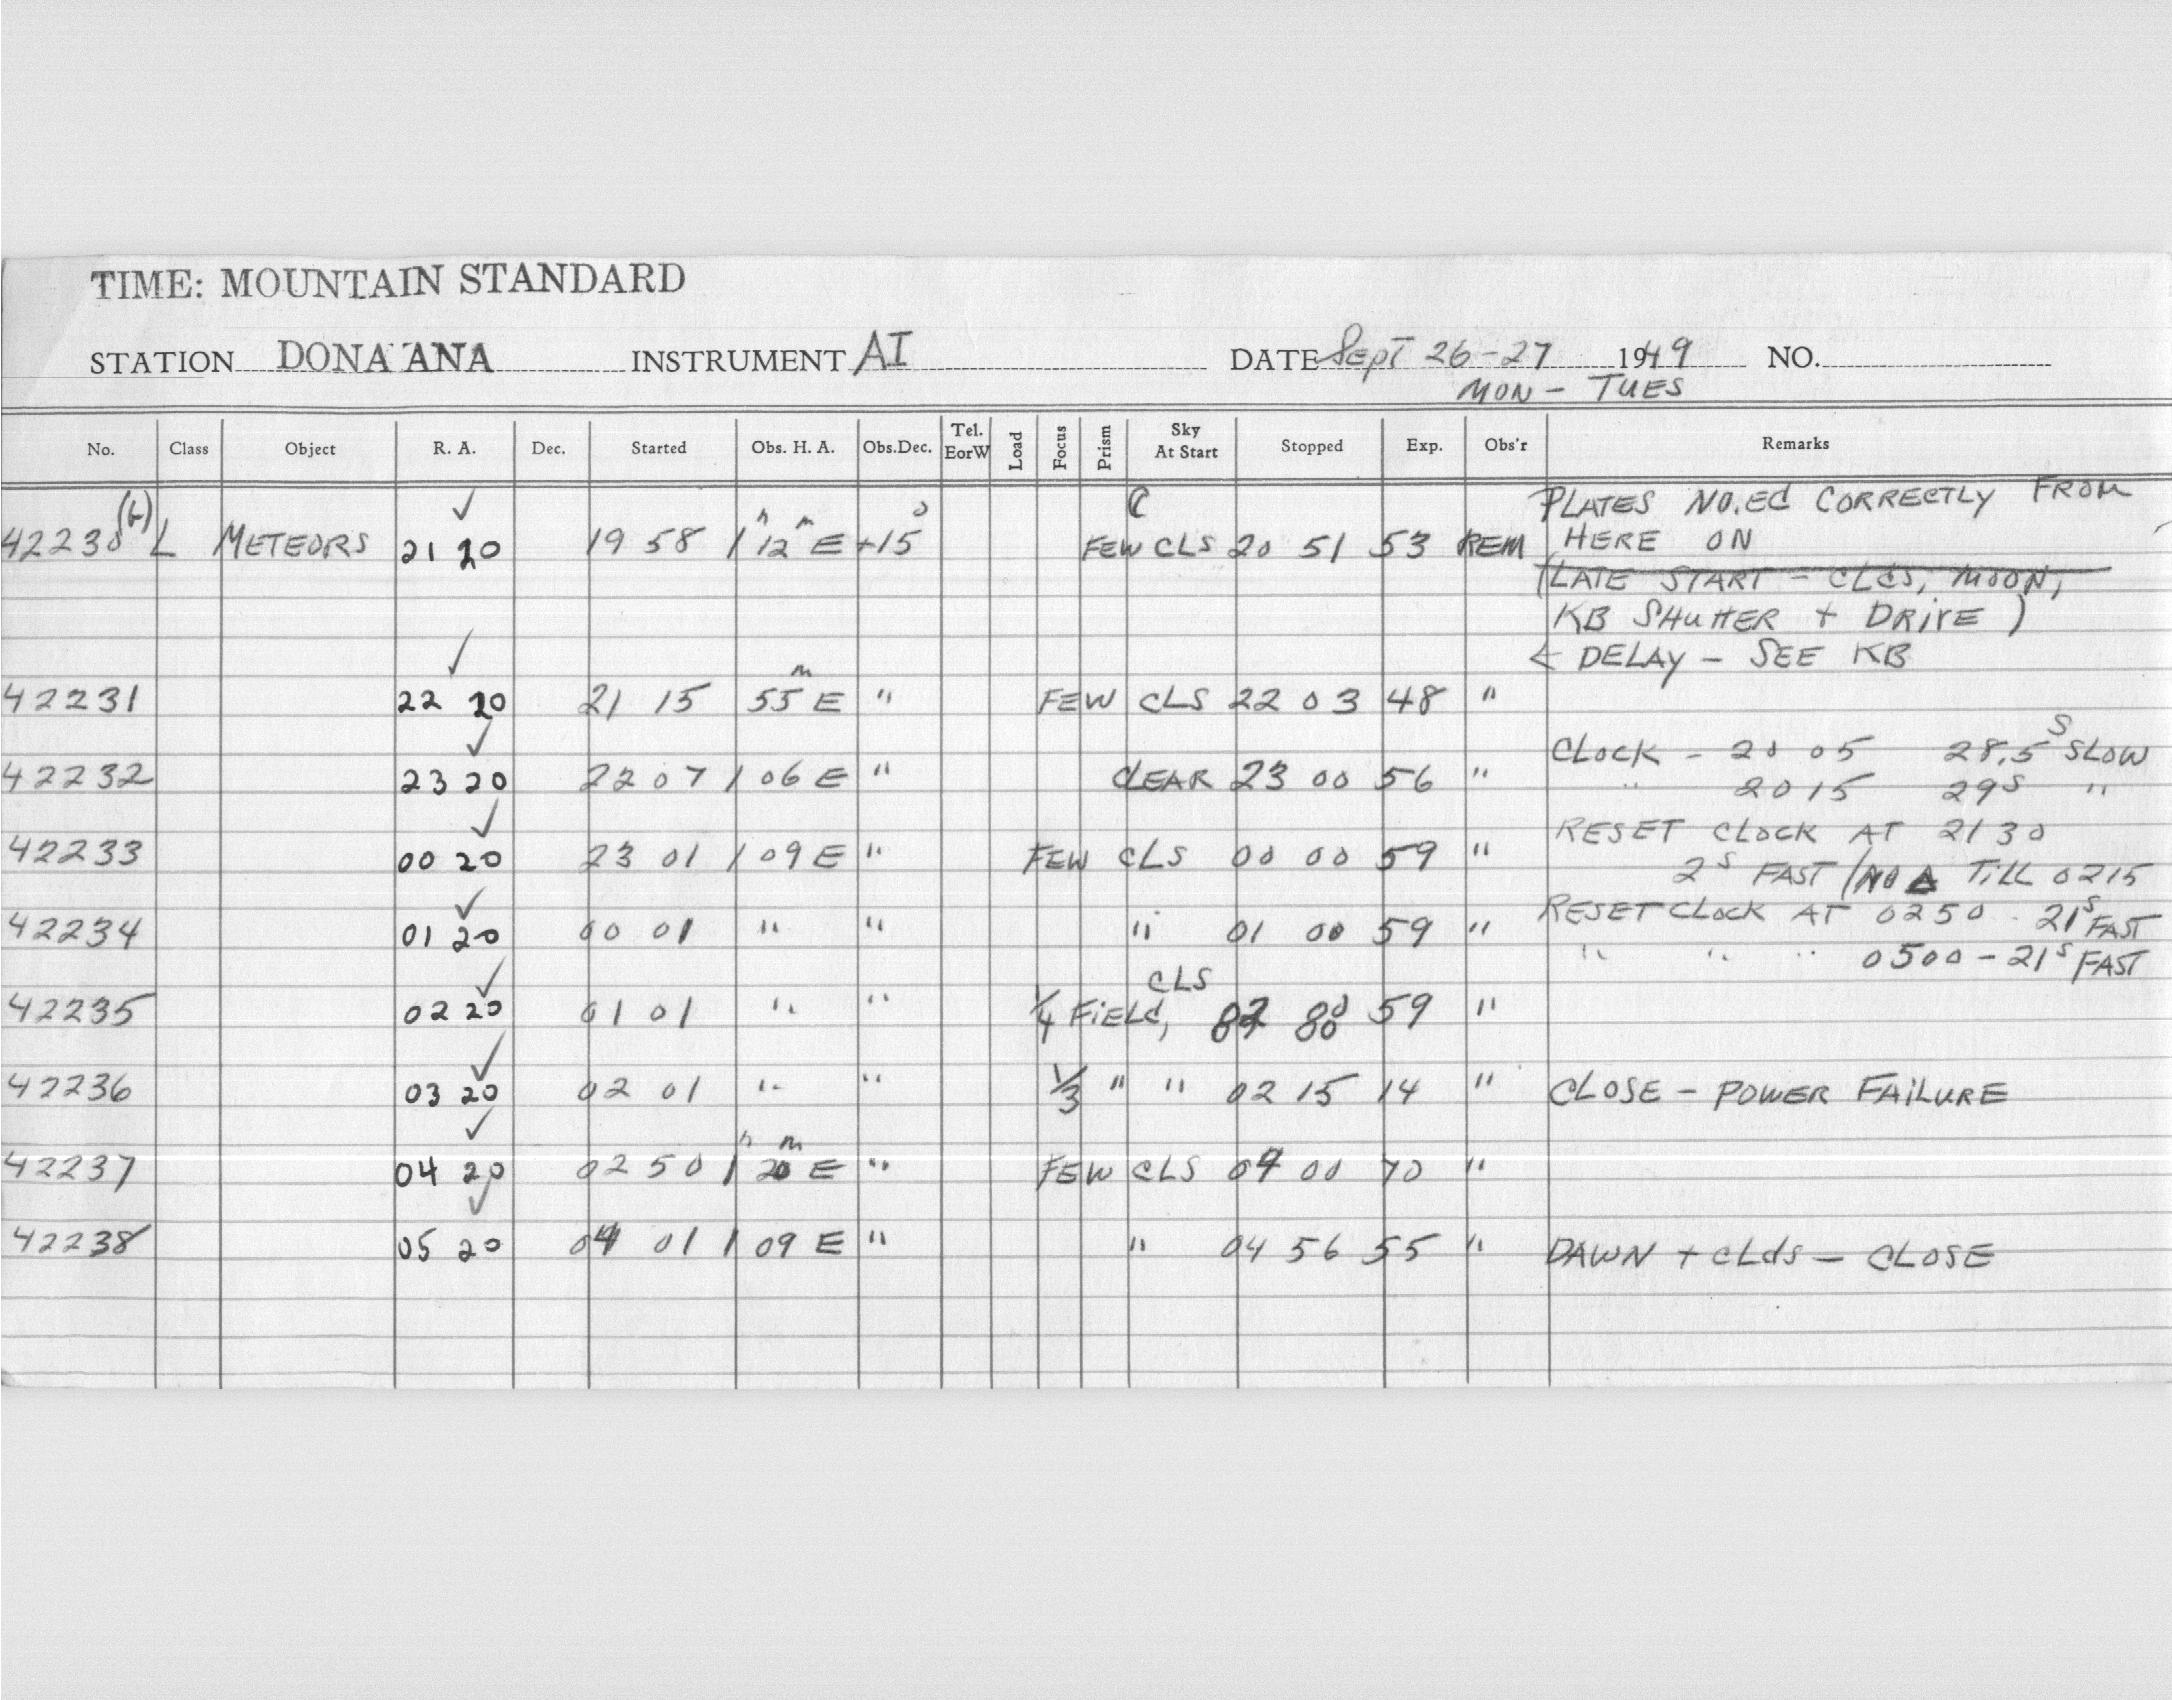 TIME: MOUNTAIN STANDARD
STATION DONA ANA INSTRUMENT AI DATE SEPT 26-27 1949 NO.
MON - TUES
No. Class Object R. A. Dec. Started Obs. H. A. Obs.Dec. Tel. EorW Load Focus Prism Sky At Start Stopped Exp. Obs'r Remarks
PLATES NO.ED CORRECTLY FROM
42230 L METEORS 21 20 19 58 1 h 12 m E +15° FEW CLS 20 51 53 REM HERE ON
(LATE START - CLDS, MOON,
KB SHUTTER + DRIVE)
< DELAY - SEE KB
42231 22 20 21 15 55 m E " FEW CLS 22 03 48 "
CLOCK - 20 05 28.5 S SLOW
42232 23 20 22 07 1 06 E " CLEAR 23 00 56 "
" 20 15 29 S "
RESET CLOCK AT 21 30
42233 00 20 23 01 1 09 E " FEW CLS 00 00 59 "
2 S FAST (NO Δ TILL 0215
RESET CLOCK AT 0250 - 21 S FAST
42234 01 20 00 01 " " " 01 00 59 "
" " " 0500 - 21 S FAST
42235 02 20 01 01 " " 1/4 FIELD, CLS 02 00 59 "
42236 03 20 02 01 " " 1/3 " " 02 15 14 " CLOSE - POWER FAILURE
42237 04 20 02 50 1 h 20 m E " FEW CLS 04 00 70 "
42238 05 20 04 01 1 09 E " " 04 56 55 " DAWN + CLDS - CLOSE